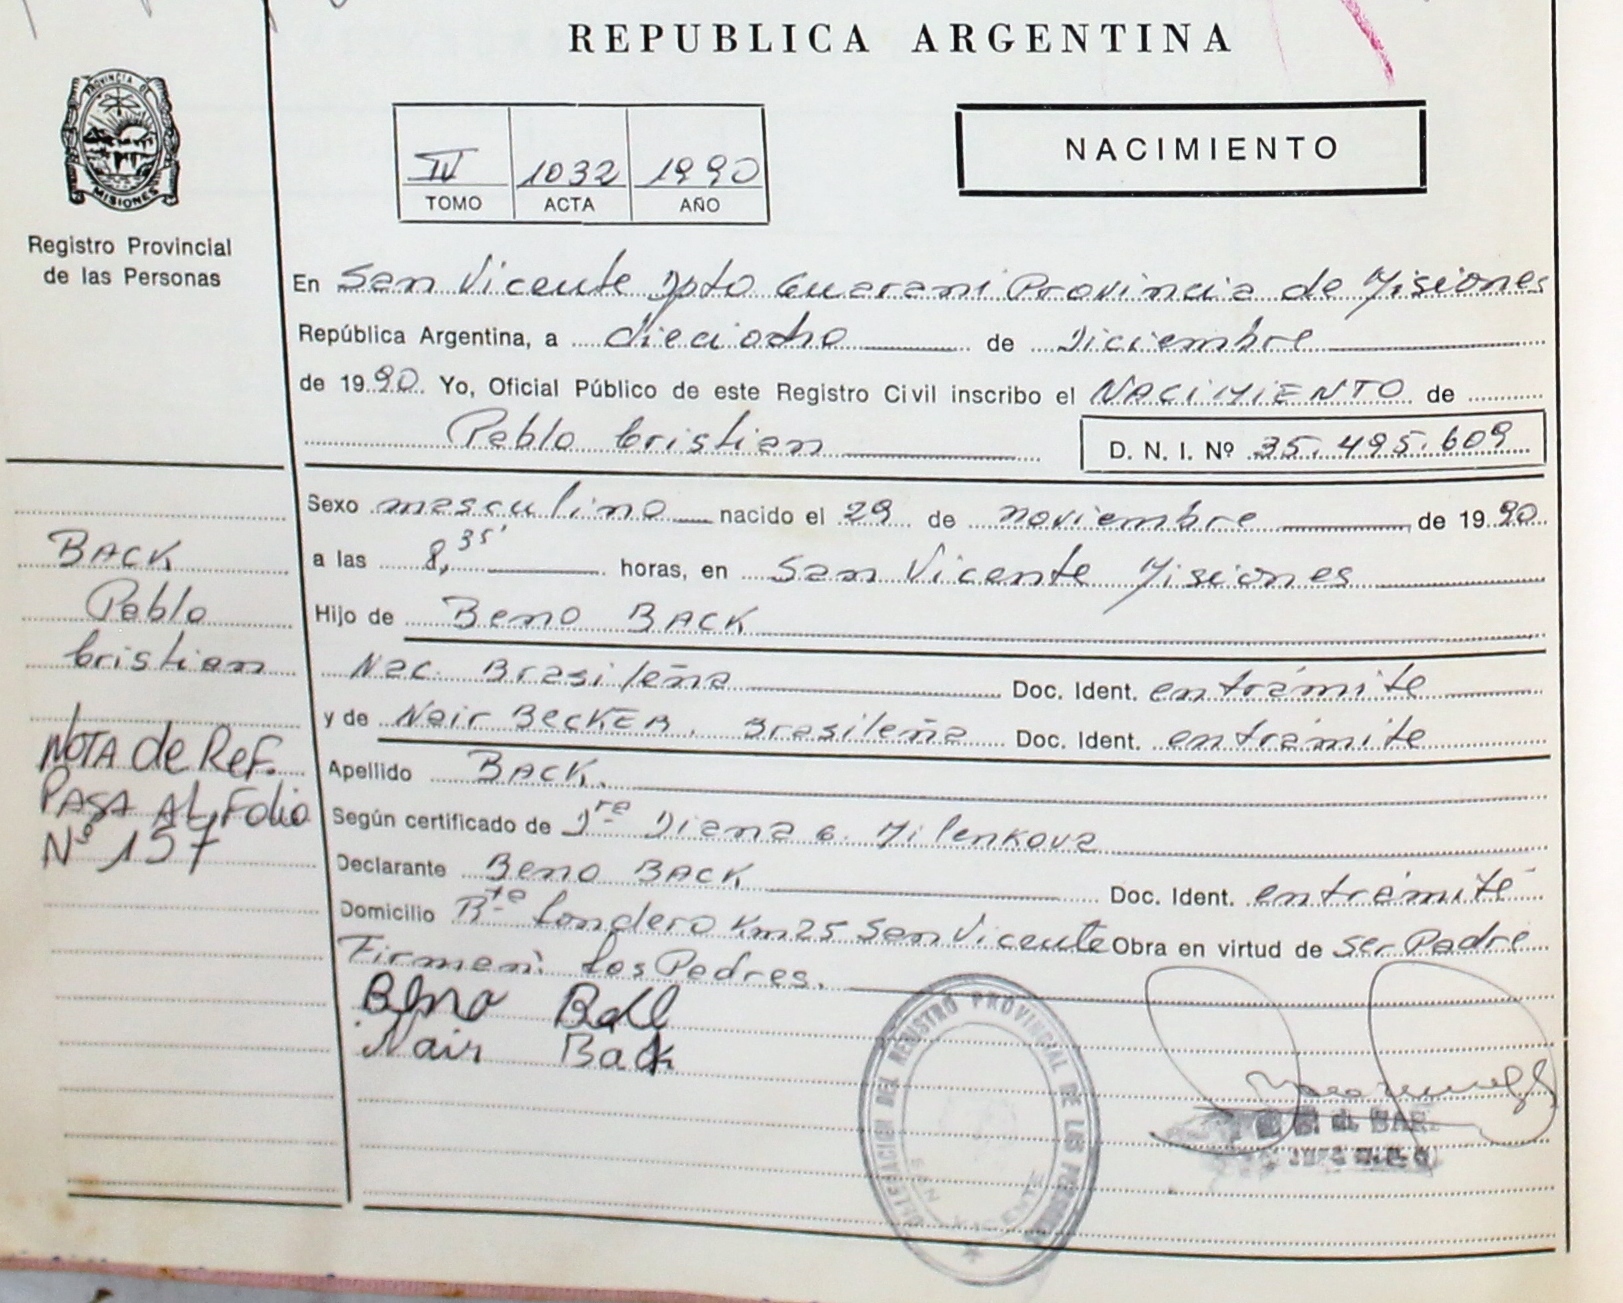 REPUBLICA ARGENTINA
PROVINCIA DE
MISIONES
Registro Provincial
de las Personas
IV 1032 1990
TOMO ACTA AÑO
NACIMIENTO
En San Vicente Dpto Guarani Provincia de Misiones
República Argentina, a dieciocho de Diciembre
de 1990 Yo, Oficial Público de este Registro Civil inscribo el NACIMIENTO de
Pablo Cristian D. N. I. Nº 35.495.609
Sexo masculino nacido el 29 de noviembre de 1990
a las 8,35' horas, en San Vicente Misiones
Hijo de Beno BACK
Nac. Brasileña Doc. Ident. en trámite
y de Nair BECKER. Brasileña Doc. Ident. en trámite
Apellido BACK.
Según certificado de Dra Diana C. Milenkova
Declarante Beno BACK Doc. Ident. en trámite
Domicilio Rta Londero Km 25 San Vicente Obra en virtud de ser Padre
Firman: los Padres.
Beno
Nair Back
BACK
Pablo
Cristian
NOTA de Ref.
PASA AL Folio
Nº 157
DELEGACION DEL REGISTRO PROVINCIAL DE LAS PERSONAS
SAN VICENTE